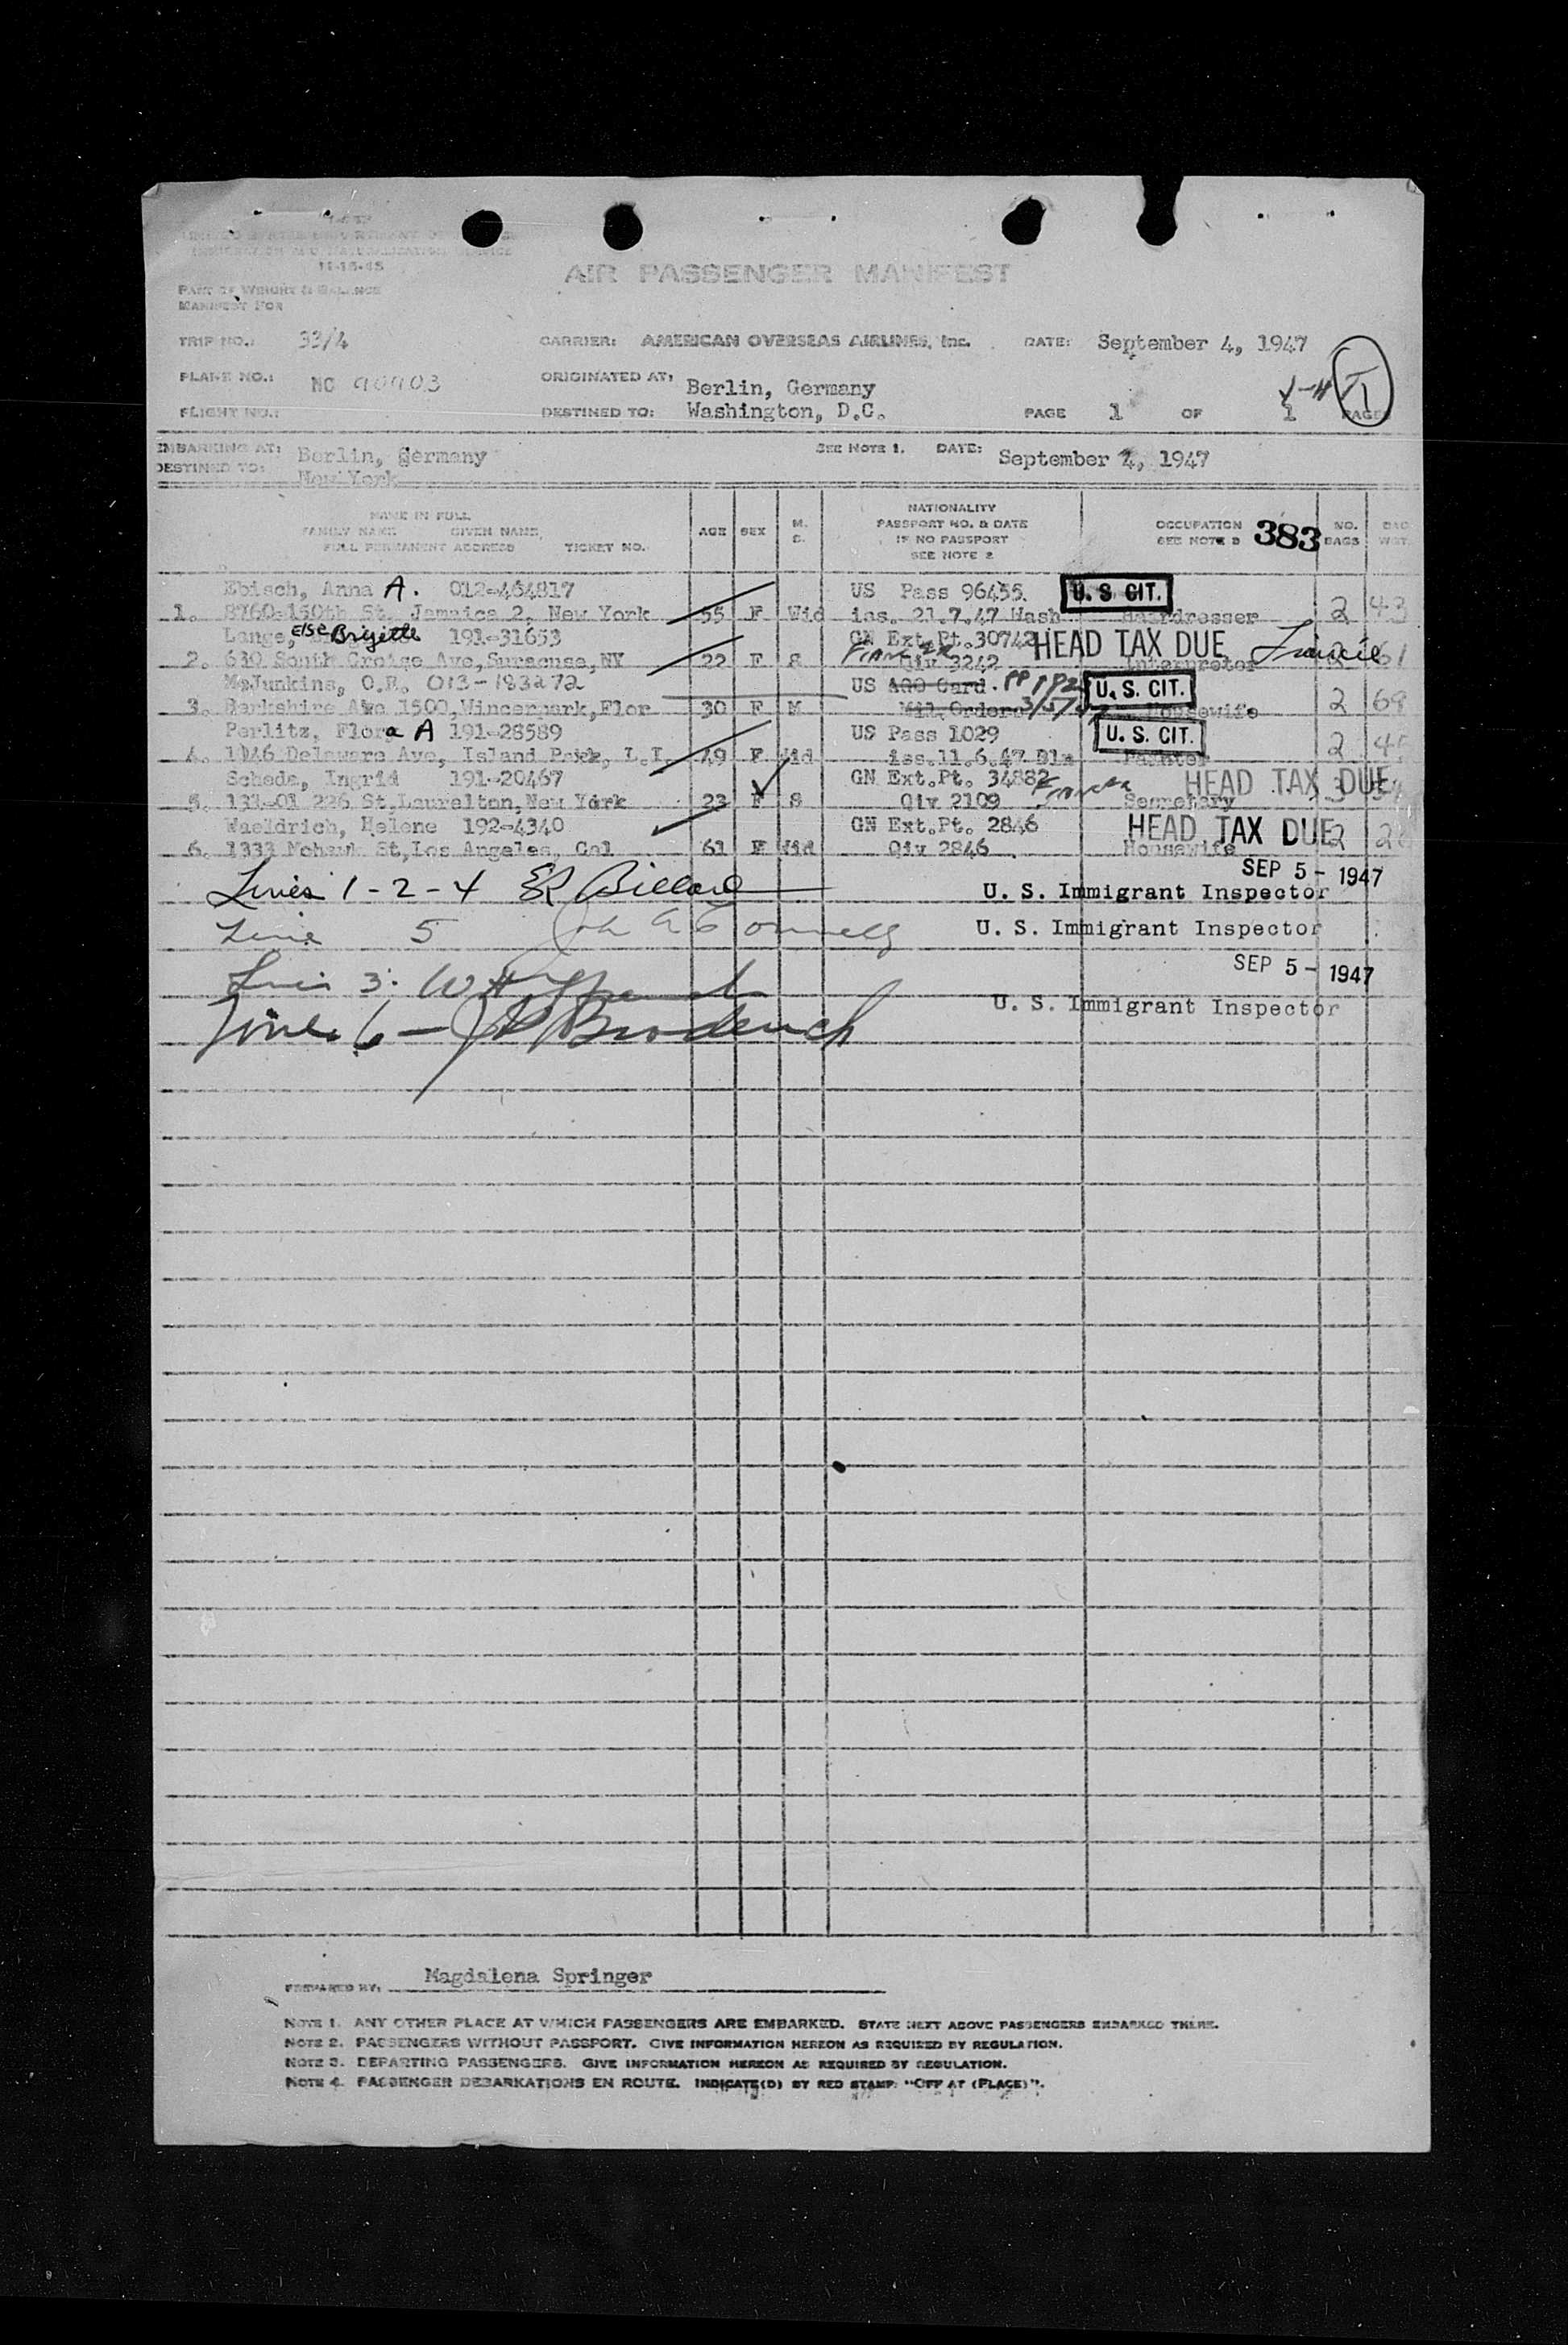 11-15-45
AIR PASSENGER MANIFEST
PART OF WEIGHT & BALANCE
MANIFEST FOR
TRIP NO.: 33/4 CARRIER: AMERICAN OVERSEAS AIRLINES, Inc. DATE: September 4, 1947
PLANE NO.: NC 90903 ORIGINATED AT: Berlin, Germany
FLIGHT NO.: DESTINED TO: Washington, D.C. PAGE 1 OF 1 PAGES
EMBARKING AT: Berlin, Germany SEE NOTE 1. DATE: September 4, 1947
DESTINED TO: New York
NAME IN FULL
FAMILY NAME GIVEN NAME,
FULL PERMANENT ADDRESS TICKET NO.
AGE SEX M. S.
NATIONALITY
PASSPORT NO. & DATE
IF NO PASSPORT
SEE NOTE 2
OCCUPATION
SEE NOTE 3 383
NO. BAGS
BAG WGT.
Ebisch, Anna A. 012-464817 US Pass 96455 U. S. CIT.
1. 8760-150th St. Jamaica 2, New York 55 F Wid iss. 21.7.47 Wash Hairdresser 2 43
Lange, Else Brigitte 191-31653 GN Ext.Pt.30742 HEAD TAX DUE
2. 630 South Ave, NY 22 F S Qiv 3242 Interpreter 61
McJunkins, O.R. 013-183272 US AGO Card. PP U. S. CIT.
3. Berkshire Ave 1500, Winterpark, Flor 30 F M Mil.Orders Housewife 2 69
Perlitz, Flora A 191-28589 US Pass 1029 U. S. CIT.
4. 1946 Delaware Ave, Island Park, L.I. 49 F Wid iss.11.6.47 Painter 2
Schede, Ingrid 191-20467 GN Ext.Pt. 34882 HEAD TAX DUE
5. 131-01 226 St, Laurelton, New York 23 F S Qiv 2109 Secretary 3
Waeldrich, Helene 192-4340 GN Ext.Pt. 2846 HEAD TAX DUE
6. 1333 Mohawk St, Los Angeles, Cal 61 F Wid Qiv 2846 Housewife 2
SEP 5 - 1947
Lines 1-2-4 ER Billard U. S. Immigrant Inspector
Line 5 U. S. Immigrant Inspector
SEP 5 - 1947
Line 3: U. S. Immigrant Inspector
Line 6 - Broderick
PREPARED BY: Magdalena Springer
NOTE 1. ANY OTHER PLACE AT WHICH PASSENGERS ARE EMBARKED. STATE NEXT ABOVE PASSENGERS EMBARKED THERE.
NOTE 2. PASSENGERS WITHOUT PASSPORT. GIVE INFORMATION HEREON AS REQUIRED BY REGULATION.
NOTE 3. DEPARTING PASSENGERS. GIVE INFORMATION HEREON AS REQUIRED BY REGULATION.
NOTE 4. PASSENGER DEBARKATIONS EN ROUTE. INDICATE(D) BY RED STAMP: "OFF AT (PLACE)".